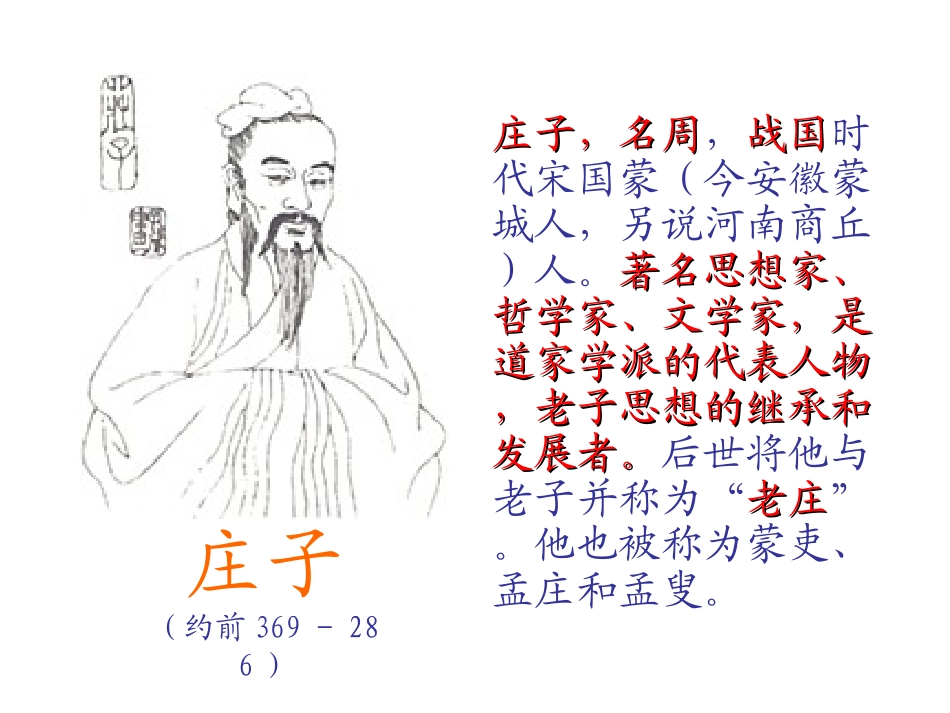 莊子
庄子，名周，战国时
代宋国蒙（今安徽蒙
城人，另说河南商丘
）人。著名思想家、
哲学家、文学家，是
道家学派的代表人物
，老子思想的继承和
发展者。后世将他与
老子并称为“老庄”
。他也被称为蒙吏、
孟庄和孟叟。
庄子
（约前 369 – 28
6 ）